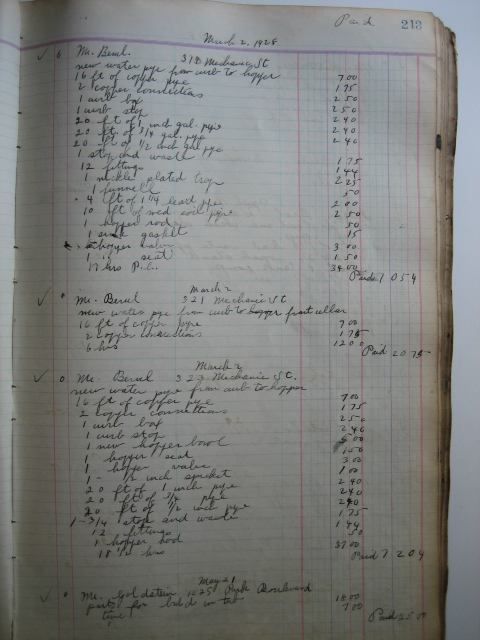 Paid 213
March 2, 1928
6 Mr. Berul. 318 Mechanic St
new water pipe from curb to hopper
16 ft of copper pipe 7 00
2 copper connections 1 75
1 curb box 2 50
1 curb stop 2 50
20 ft of 1 inch gal. pipe 2 40
20 ft of 3/4 gal. pipe 2 40
20 ft of 1/2 inch gal pipe 2 40
1 stop and waste 1 75
12 fittings 1 44
1 nickle plated trap 2 25
1 funnell 50
4 ft of 1 1/4 lead pipe 2 00
10 ft of med soil pipe 2 50
1 hopper rod 50
1 gasket 15
hopper 3 00
1 " seat 1 50
17 hrs 34 00
Paid 7 0 54
March 2
Mr. Berul 321 Mechanic St
new water pipe from curb to hopper front cellar
16 ft of copper pipe 7 00
2 copper connections 1 75
6 hrs 12 00
Paid 20 75
March 2
0 Mr. Berul 323 Mechanic St.
new water pipe from curb to hopper
16 ft of copper pipe 7 00
2 copper connections 1 75
1 curb box 2 50
1 curb stop 2 40
1 new hopper bowl 00
1 hopper seat 1 50
1 hopper valve 3 00
1 - 1/2 inch 1 00
20 ft of 1 inch pipe 2 40
20 ft of 3/4 pipe 2 40
20 ft of 1/2 inch pipe 2 40
1 - 3/4 stop and waste 1 75
12 fittings 1 44
1 hopper rod 50
18 1/2 hrs 37 00
Paid 7 2 04
May 21
0 Mr. Goldstein 1025 Park Boulevard
parts for 18 00
time 7 00
Paid 25 00